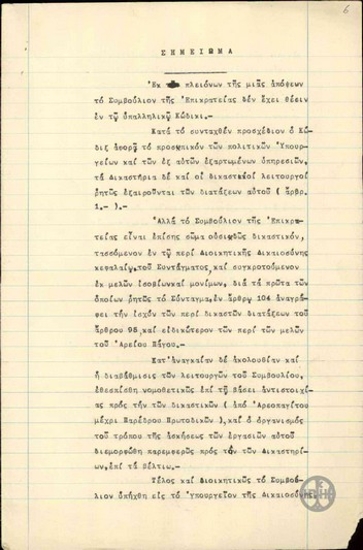 6
ΣΗΜΕΙΩΜΑ
Ἐκ πλειόνων τῆς μιᾶς ἀπόψεων
τό Συμβούλιον τῆς Ἐπικρατείας δέν ἔχει θέσιν
ἐν τῷ ὑπαλληλικῷ Κώδικι.
Κατά τό συνταχθέν προσχέδιον ὁ Κώ-
διξ ἀφορᾷ τό προσωπικόν τῶν πολιτικῶν Ὑπουρ-
γείων καί τῶν ἐξ αὐτῶν ἐξαρτωμένων ὑπηρεσιῶν,
τά Δικαστήρια δέ καί οἱ δικαστικοί λειτουργοί
ῥητῶς ἐξαιροῦνται τῶν διατάξεων αὐτοῦ ( ἄρθρ.
1.- ).-
Ἀλλά τό Συμβούλιον τῆς Ἐπικρα-
τείας εἶναι ἐπίσης σῶμα οὐσιωδῶς δικαστικόν,
τασσόμενον ἐν τῷ περί Διοικητικῆς Δικαιοσύνης
κεφαλαίῳ τοῦ Συντάγματος, καί συγκροτούμενον
ἐκ μελῶν ἰσοβίων καί μονίμων, διά τά πρῶτα τῶν
ὁποίων ῥητῶς τό Σύνταγμα, ἐν ἄρθρῳ 104 ἀναγρά-
φει τήν ἰσχύν τῶν περί δικαστῶν διατάξεων τοῦ
ἄρθρου 95, καί εἰδικώτερον τῶν περί τῶν μελῶν
τοῦ Ἀρείου Πάγου.
Κατ' ἀναγκαίαν δέ ἀκολουθίαν καί
ἡ διαβάθμισις τῶν λειτουργῶν τοῦ Συμβουλίου,
ἐθεσπίσθη νομοθετικῶς ἐπί τῇ βάσει ἀντιστοιχί-
ας πρός τήν τῶν δικαστικῶν ( ἀπό Ἀρεοπαγίτου
μέχρι Παρέδρου Πρωτοδικῶν ), καί ὁ ὀργανισμός
τοῦ τρόπου τῆς ἀσκήσεως τῶν ἐργασιῶν αὐτοῦ
διεμορφώθη παρεμφερῶς πρός τόν τῶν Δικαστηρί-
ων, ἐπί τά βέλτιω.-
Τέλος καί Διοικητικῶς τό Συμβού-
λιον ὑπήχθη εἰς τό Ὑπουργεῖον τῆς Δικαιοσύνης